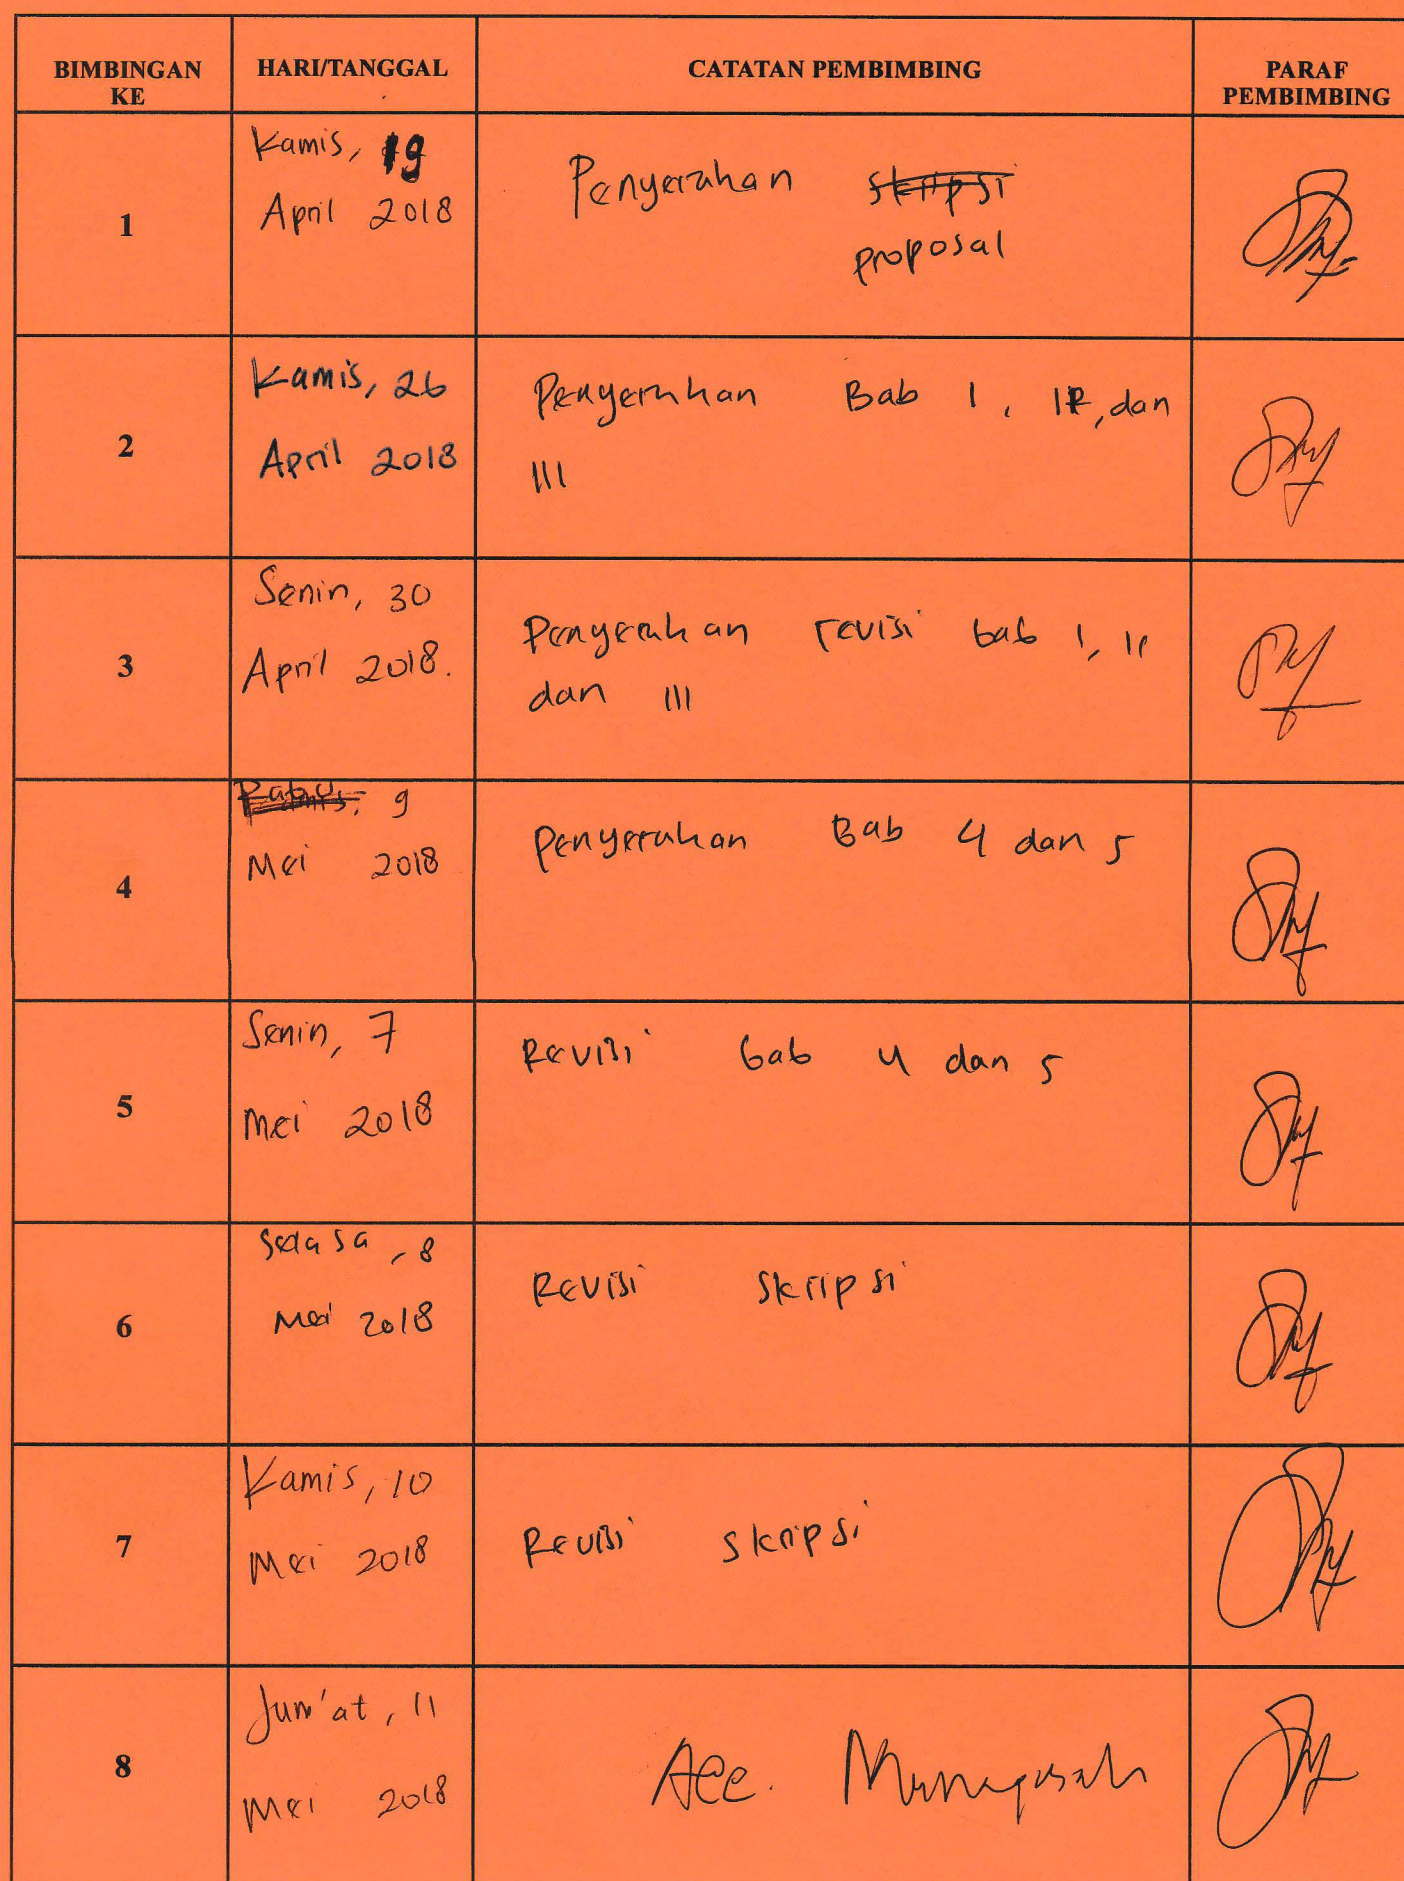 BIMBINGAN KE HARI/TANGGAL CATATAN PEMBIMBING PARAF PEMBIMBING
1
Kamis, 19
April 2018
Penyerahan skripsi
proposal
2
Kamis, 26
April 2018
Penyerahan Bab I, II, dan
III
3
Senin, 30
April 2018.
Penyerahan revisi bab I, II
dan III
4
9
Mei 2018
Penyerahan Bab 4 dan 5
5
Senin, 7
Mei 2018
Revisi bab 4 dan 5
6
Selasa, 8
Mei 2018
Revisi skripsi
7
Kamis, 10
Mei 2018
Revisi skripsi
8
Jum'at, 11
Mei 2018
Acc. Munaqasah